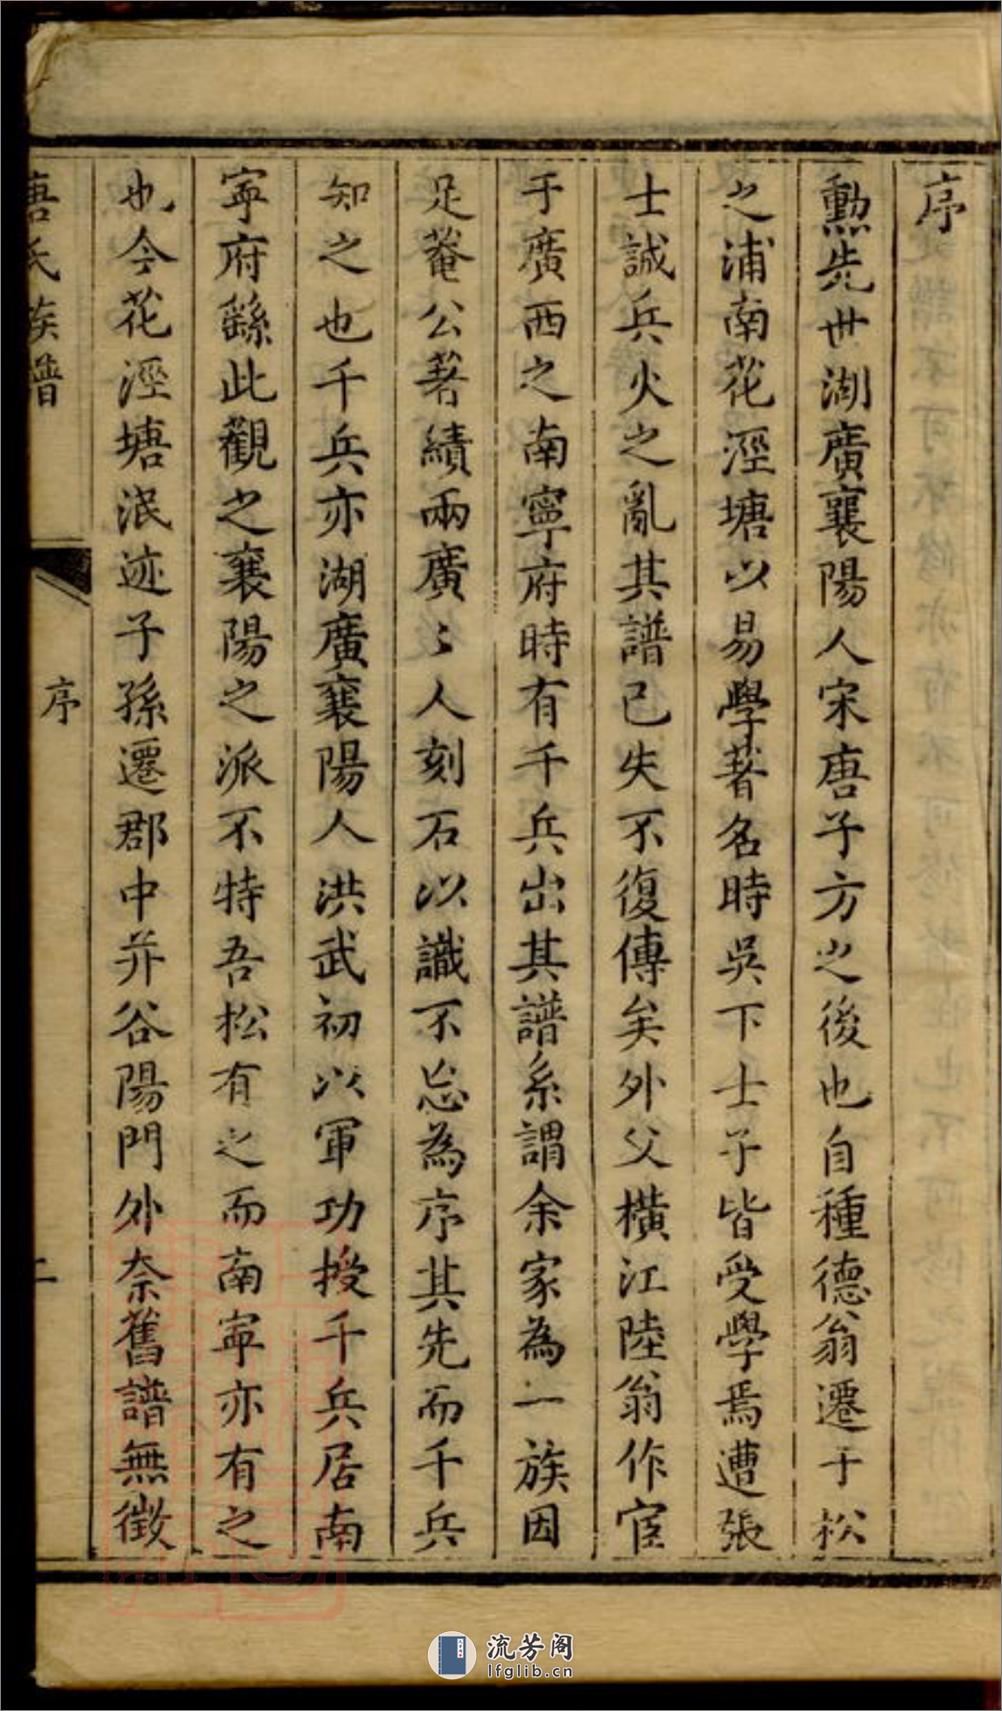 序
勲先世湖廣襄陽人宋唐子方之後也自種德翁遷于松
之浦南花涇塘以易學著名時吳下士子皆受學焉遭張
士誠兵火之亂其譜已失不復傳矣外父橫江陸翁作宦
于廣西之南寧府時有千兵出其譜系謂余家為一族因
足菴公著績兩廣〻人刻石以識不忘為序其先而千兵
知之也千兵亦湖廣襄陽人洪武初以軍功授千兵居南
寧府繇此觀之襄陽之派不特吾松有之而南寧亦有之
也今花涇塘泯迹子孫遷郡中并谷陽門外奈舊譜無徵
唐氏族譜
序
二
流芳阁
lfglib.cn